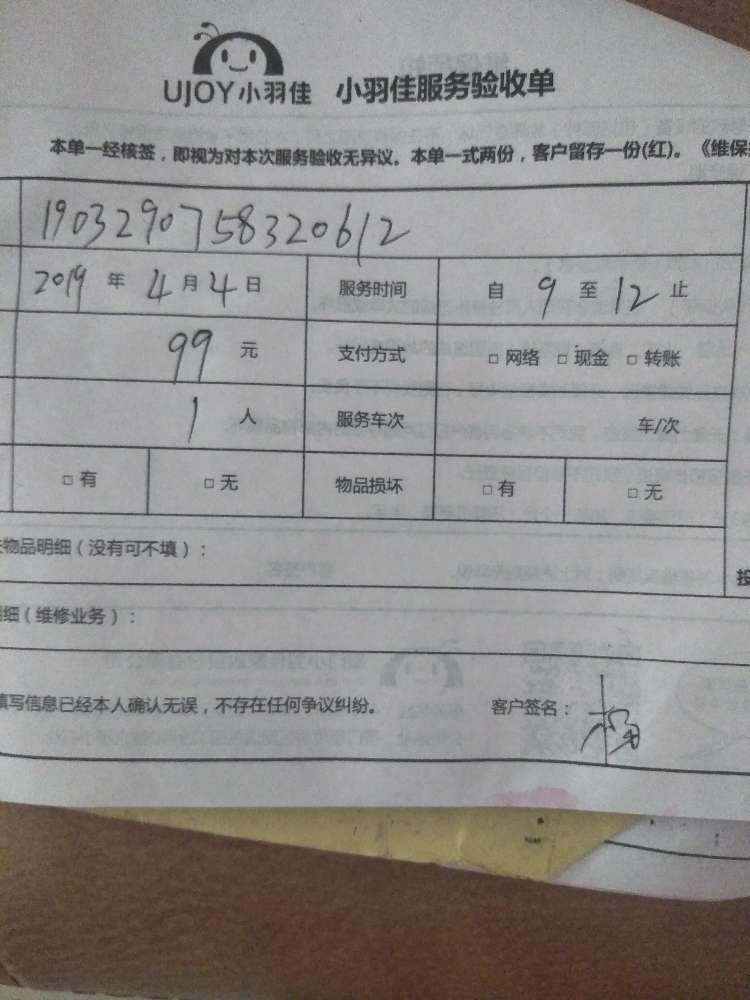 UJOY小羽佳 小羽佳服务验收单
本单一经核签，即视为对本次服务验收无异议。本单一式两份，客户留存一份(红)。《维保
1903290758320612
2019 年 4 月 4 日 服务时间 自 9 至 12 止
99 元 支付方式 □ 网络 □ 现金 □ 转账
1 人 服务车次 车/次
□ 有 □ 无 物品损坏 □ 有 □ 无
物品明细（没有可不填）：
投
细（维修业务）：
填写信息已经本人确认无误，不存在任何争议纠纷。 客户签名：